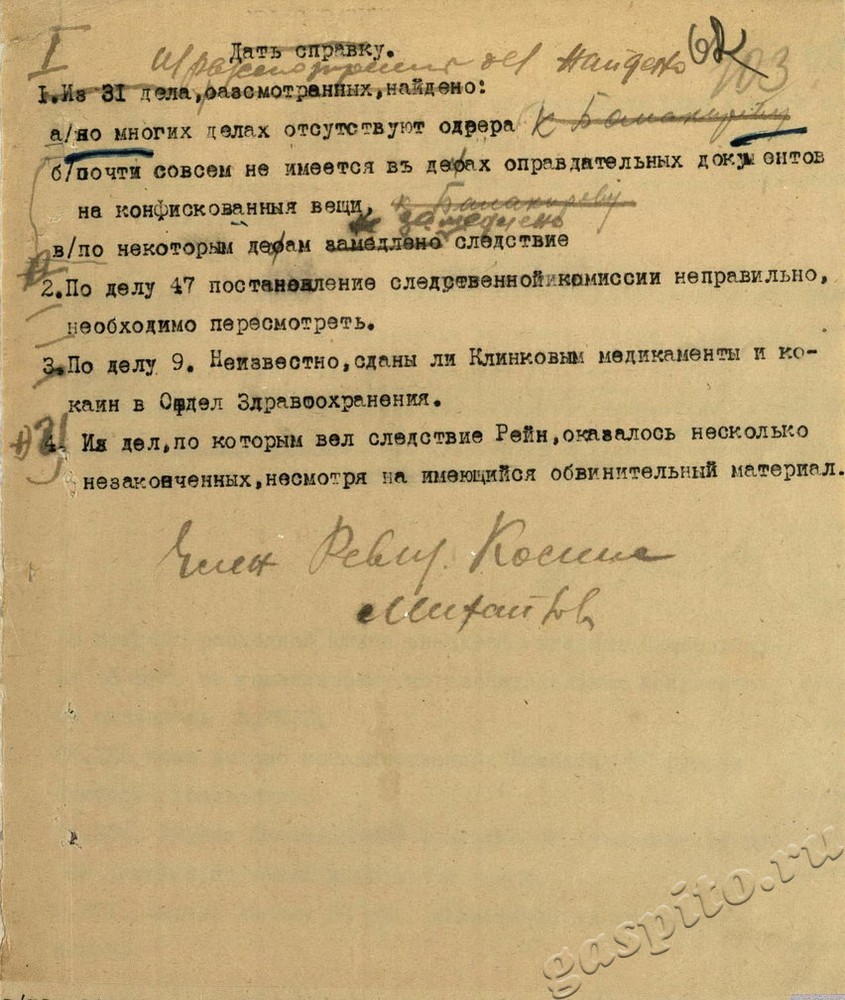 I Дать справку. 62
И рассмотрения дел найдено 103
1.Из 31 дела,разсмотранных,найдено:
а/во многих делах отсутствуют одрера к Балакиреву
б/почти совсем не имеется въ делах оправдательных документов
на конфискованныя вещи, к Балакиреву
замедлень
в/по некоторым делам замедлено следствие
2.По делу 47 постановление следственной комиссии неправильно,
необходимо пересмотреть.
3.По делу 9. Неизвестно,сданы ли Клинковым медикаменты и ко-
каин в Отдел Здравоохранения.
4. Из дел,по которым вел следствие Рейн,оказалось несколько
незаконченных,несмотря на имеющийся обвинительный материал.
Член Ревиз. Комис
Михайлов
gaspito.ru